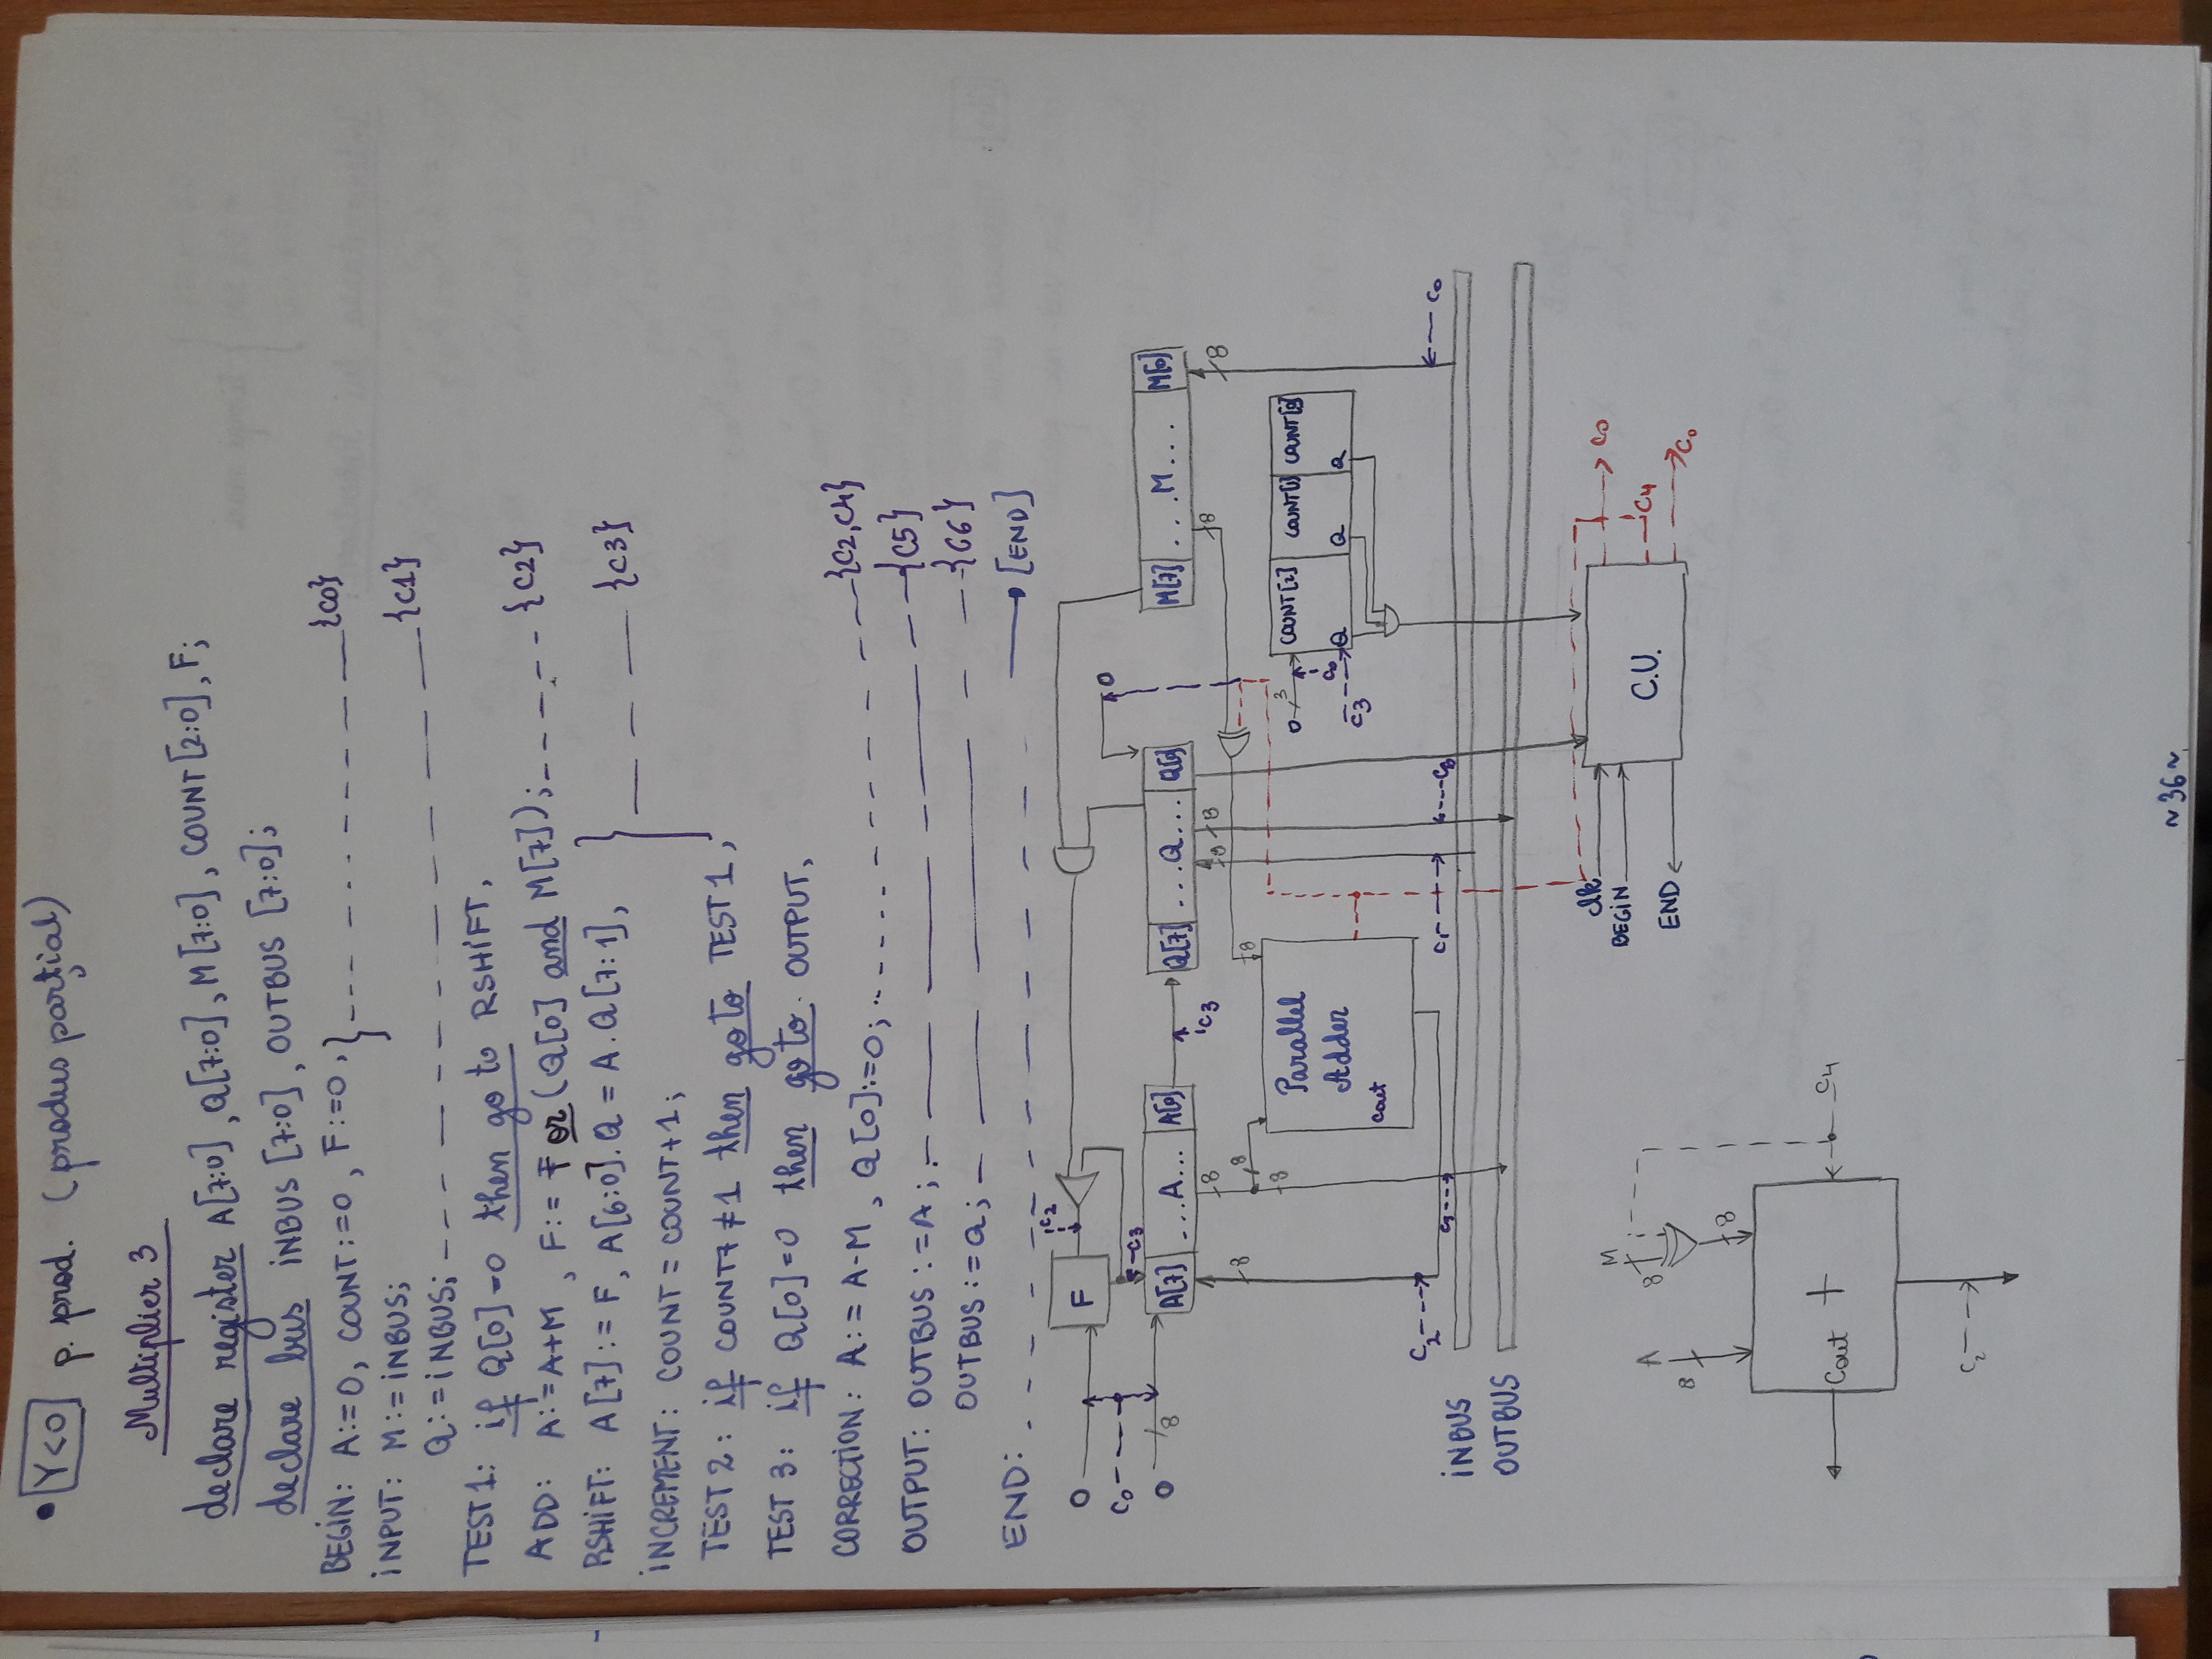 • Y<0 p. prod. (produs parțial)
Multiplier 3
declare register A[7:0], Q[7:0], M[7:0], COUNT[2:0], F;
declare bus INBUS [7:0], OUTBUS [7:0];
BEGIN: A:=0, COUNT:=0, F:=0, } {c0}
INPUT: M:= INBUS;
Q:= INBUS; {c1}
TEST1: if Q[0]=0 then go to RSHIFT,
ADD: A:=A+M, F:= F or (Q[0] and M[7]); {c2}
RSHIFT: A[7]:= F, A[6:0].Q = A.Q[7:1], } {c3}
INCREMENT: COUNT = COUNT+1;
TEST 2: if COUNT7 ≠ 1 then go to TEST 1,
TEST 3: if Q[0]=0 then go to OUTPUT,
CORRECTION: A:= A-M, Q[0]:=0; {c2,c4}
OUTPUT: OUTBUS := A; {c5}
OUTBUS := Q; {c6}
END: [END]
0 F c2
c0 0
c3
0 8 A[7] ...A... A[0] c3 Q[7] ...Q... Q[0] M[7] ...M... M[0]
8 8 8 8 8
8 8 8
8
Parallel
Adder
cout
0 3 COUNT[2] COUNT[1] COUNT[0]
c0
c3 Q Q Q
c2 c1 c0
INBUS
OUTBUS
clk
BEGIN
END
C.U.
c0
c4
c0
A M
8 8
8
Cout + c4
c2
~36~